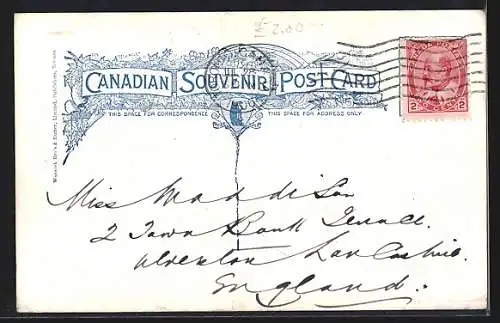 2.00
CANADIAN SOUVENIR POST CARD
THIS SPACE FOR CORRESPONDENCE THIS SPACE FOR ADDRESS ONLY
2 2
Miss Maddison
2 Town Bank Terrace.
Ulverston Lancashire.
England.
Warwick Bro's & Rutter, Limited, Publishers, Toronto